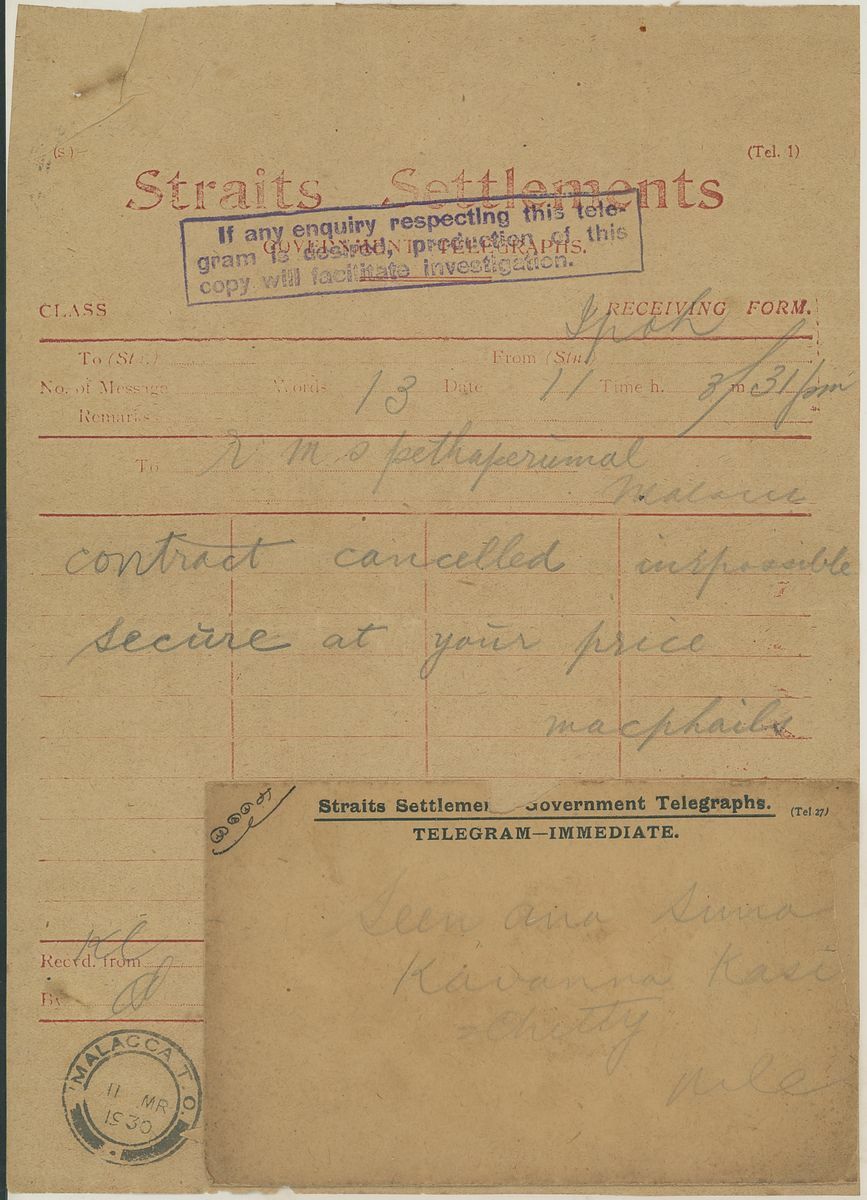 (s.)
(Tel. 1)
Straits Settlements
GOVERNMENT TELEGRAPHS.
If any enquiry respecting this tele-
gram is desired, production of this
copy will facilitate investigation.
CLASS RECEIVING FORM.
Ipoh
To (Stn.) From (Stn)
No. of Message Words 13 Date 11 Time h. 3 m 31 pm
Remarks
To R m s pethaperumal
contract cancelled impossible
secure at your price
macphails
Recvd. from KL
By
MALACCA T.O.
11 MR
1930
Straits Settlemen Government Telegraphs. (Tel 27)
TELEGRAM—IMMEDIATE.
Seena ana Suna
Kavanna Kasi
Chitty